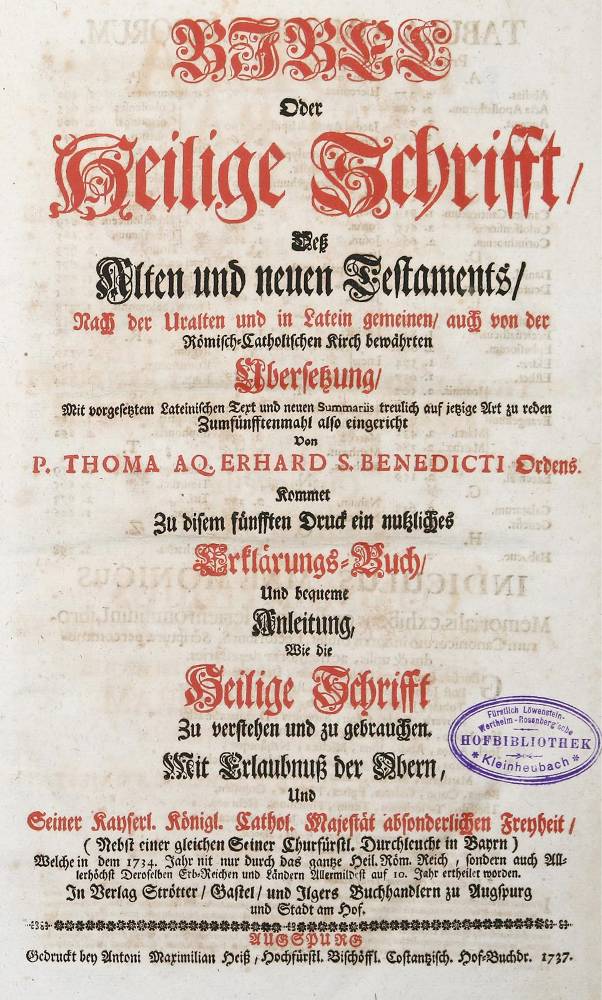 BIBEL
Oder
Heilige Schrifft/
Deß
Alten und neuen Testaments/
Nach der Uralten und in Latein gemeinen/ auch von der
Römisch-Catholischen Kirch bewährten
Übersetzung/
Mit vorgesetztem Lateinischen Text und neuen Summariis treulich auf jetzige Art zu reden
Zumfünfftenmahl also eingericht
Von
P. THOMA AQ. ERHARD S. BENEDICTI Ordens.
Kommet
Zu disem fünfften Druck ein nutzliches
Erklärungs-Buch/
Und bequeme
Anleitung,
Wie die
Heilige Schrifft
Zu verstehen und zu gebrauchen.
Mit Erlaubnuß der Obern,
Und
Seiner Kayserl. Königl. Cathol. Majestät absonderlichen Freyheit/
( Nebst einer gleichen Seiner Churfürstl. Durchleucht in Bayrn )
Welche in dem 1734. Jahr nit nur durch das gantze Heil. Röm. Reich, sondern auch All-
lerhöchst Deroselben Erb-Reichen und Ländern Allermildest auf 10. Jahr ertheilet worden.
In Verlag Strötter/ Gastel/ und Ilgers Buchhandlern zu Augspurg
und Stadt am Hof.
AUGSPURG
Gedruckt bey Antoni Maximilian Heiß, Hochfürstl. Bischöffl. Costantzisch. Hof-Buchdr. 1737.
Fürstlich Löwenstein-
Wertheim-Rosenberg'sche
HOFBIBLIOTHEK
* Kleinheubach *